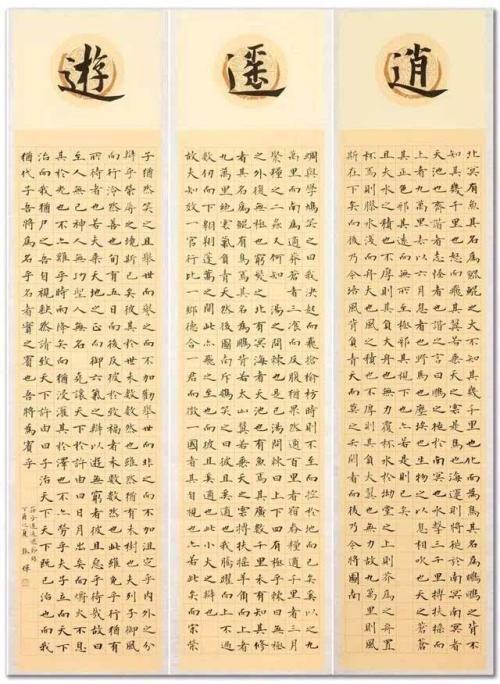 逍
北冥有魚其名為鯤大不知其幾千里也化而為鳥其名為鵬鵬之背不
知其幾千里也怒而飛其翼若垂天之雲是鳥也海運則將徙於南冥南冥者
天池也齊諧者志怪者也諧之言曰鵬之徙於南冥也水擊三千里摶扶搖而
上者九萬里去以六月息者也野馬也塵埃也生物之以息相吹也天之蒼蒼
其正色邪其遠而無所至極邪其視下也亦若是則已矣
且夫水之積也不厚則其負大舟也無力覆杯水於坳堂之上則芥為之舟置
杯焉則膠水淺而舟大也風之積也不厚則其負大翼也無力故九萬里則風
斯在下矣而後乃今培風背負青天而莫之夭閼者而後乃今將圖南
遙
蜩與學鳩笑之曰我決起而飛搶榆枋時則不至而控於地而已矣奚以之九
萬里而南為適莽蒼者三飡而反腹猶果然適百里者宿舂糧適千里者三月
聚糧之二蟲又何知 湯之問棘也是已湯問棘曰上下四方有極乎棘曰無極
之外復無極也窮髮之北有冥海者天池也有魚焉其廣數千里未有知其修
者其名為鯤有鳥焉其名為鵬背若太山翼若垂天之雲摶扶搖羊角而上者
九萬里絕雲氣負青天然後圖南斥鴳笑之曰彼且奚適也我騰躍而上不過
數仞而下翱翔蓬蒿之間此亦飛之至也而彼且奚適也此小大之辯也
故夫知效一官行比一鄉德合一君而徵一國者其自視也亦若此矣而宋榮
遊
子猶然笑之且舉世而譽之而不加勸舉世而非之而不加沮定乎內外之分
辯乎榮辱之境斯已矣彼其於世未數數然也雖然猶有未樹也夫列子御風
而行泠然善也旬有五日而後反彼於致福者未數數然也此雖免乎行猶有
所待者也若夫乘天地之正而御六氣之辯以遊無窮者彼且惡乎待哉故曰
至人無己神人無功聖人無名 堯讓天下於許由曰日月出矣而爝火不息
其於光也不亦難乎時雨降矣而猶浸灌其於澤也不亦勞乎夫子立而天下
治而我猶尸之吾自視缺然請致天下許由曰子治天下天下既已治也而我
猶代子吾將為名乎名者實之賓也吾將為賓乎
莊子逍遙遊節錄
丁酉之夏